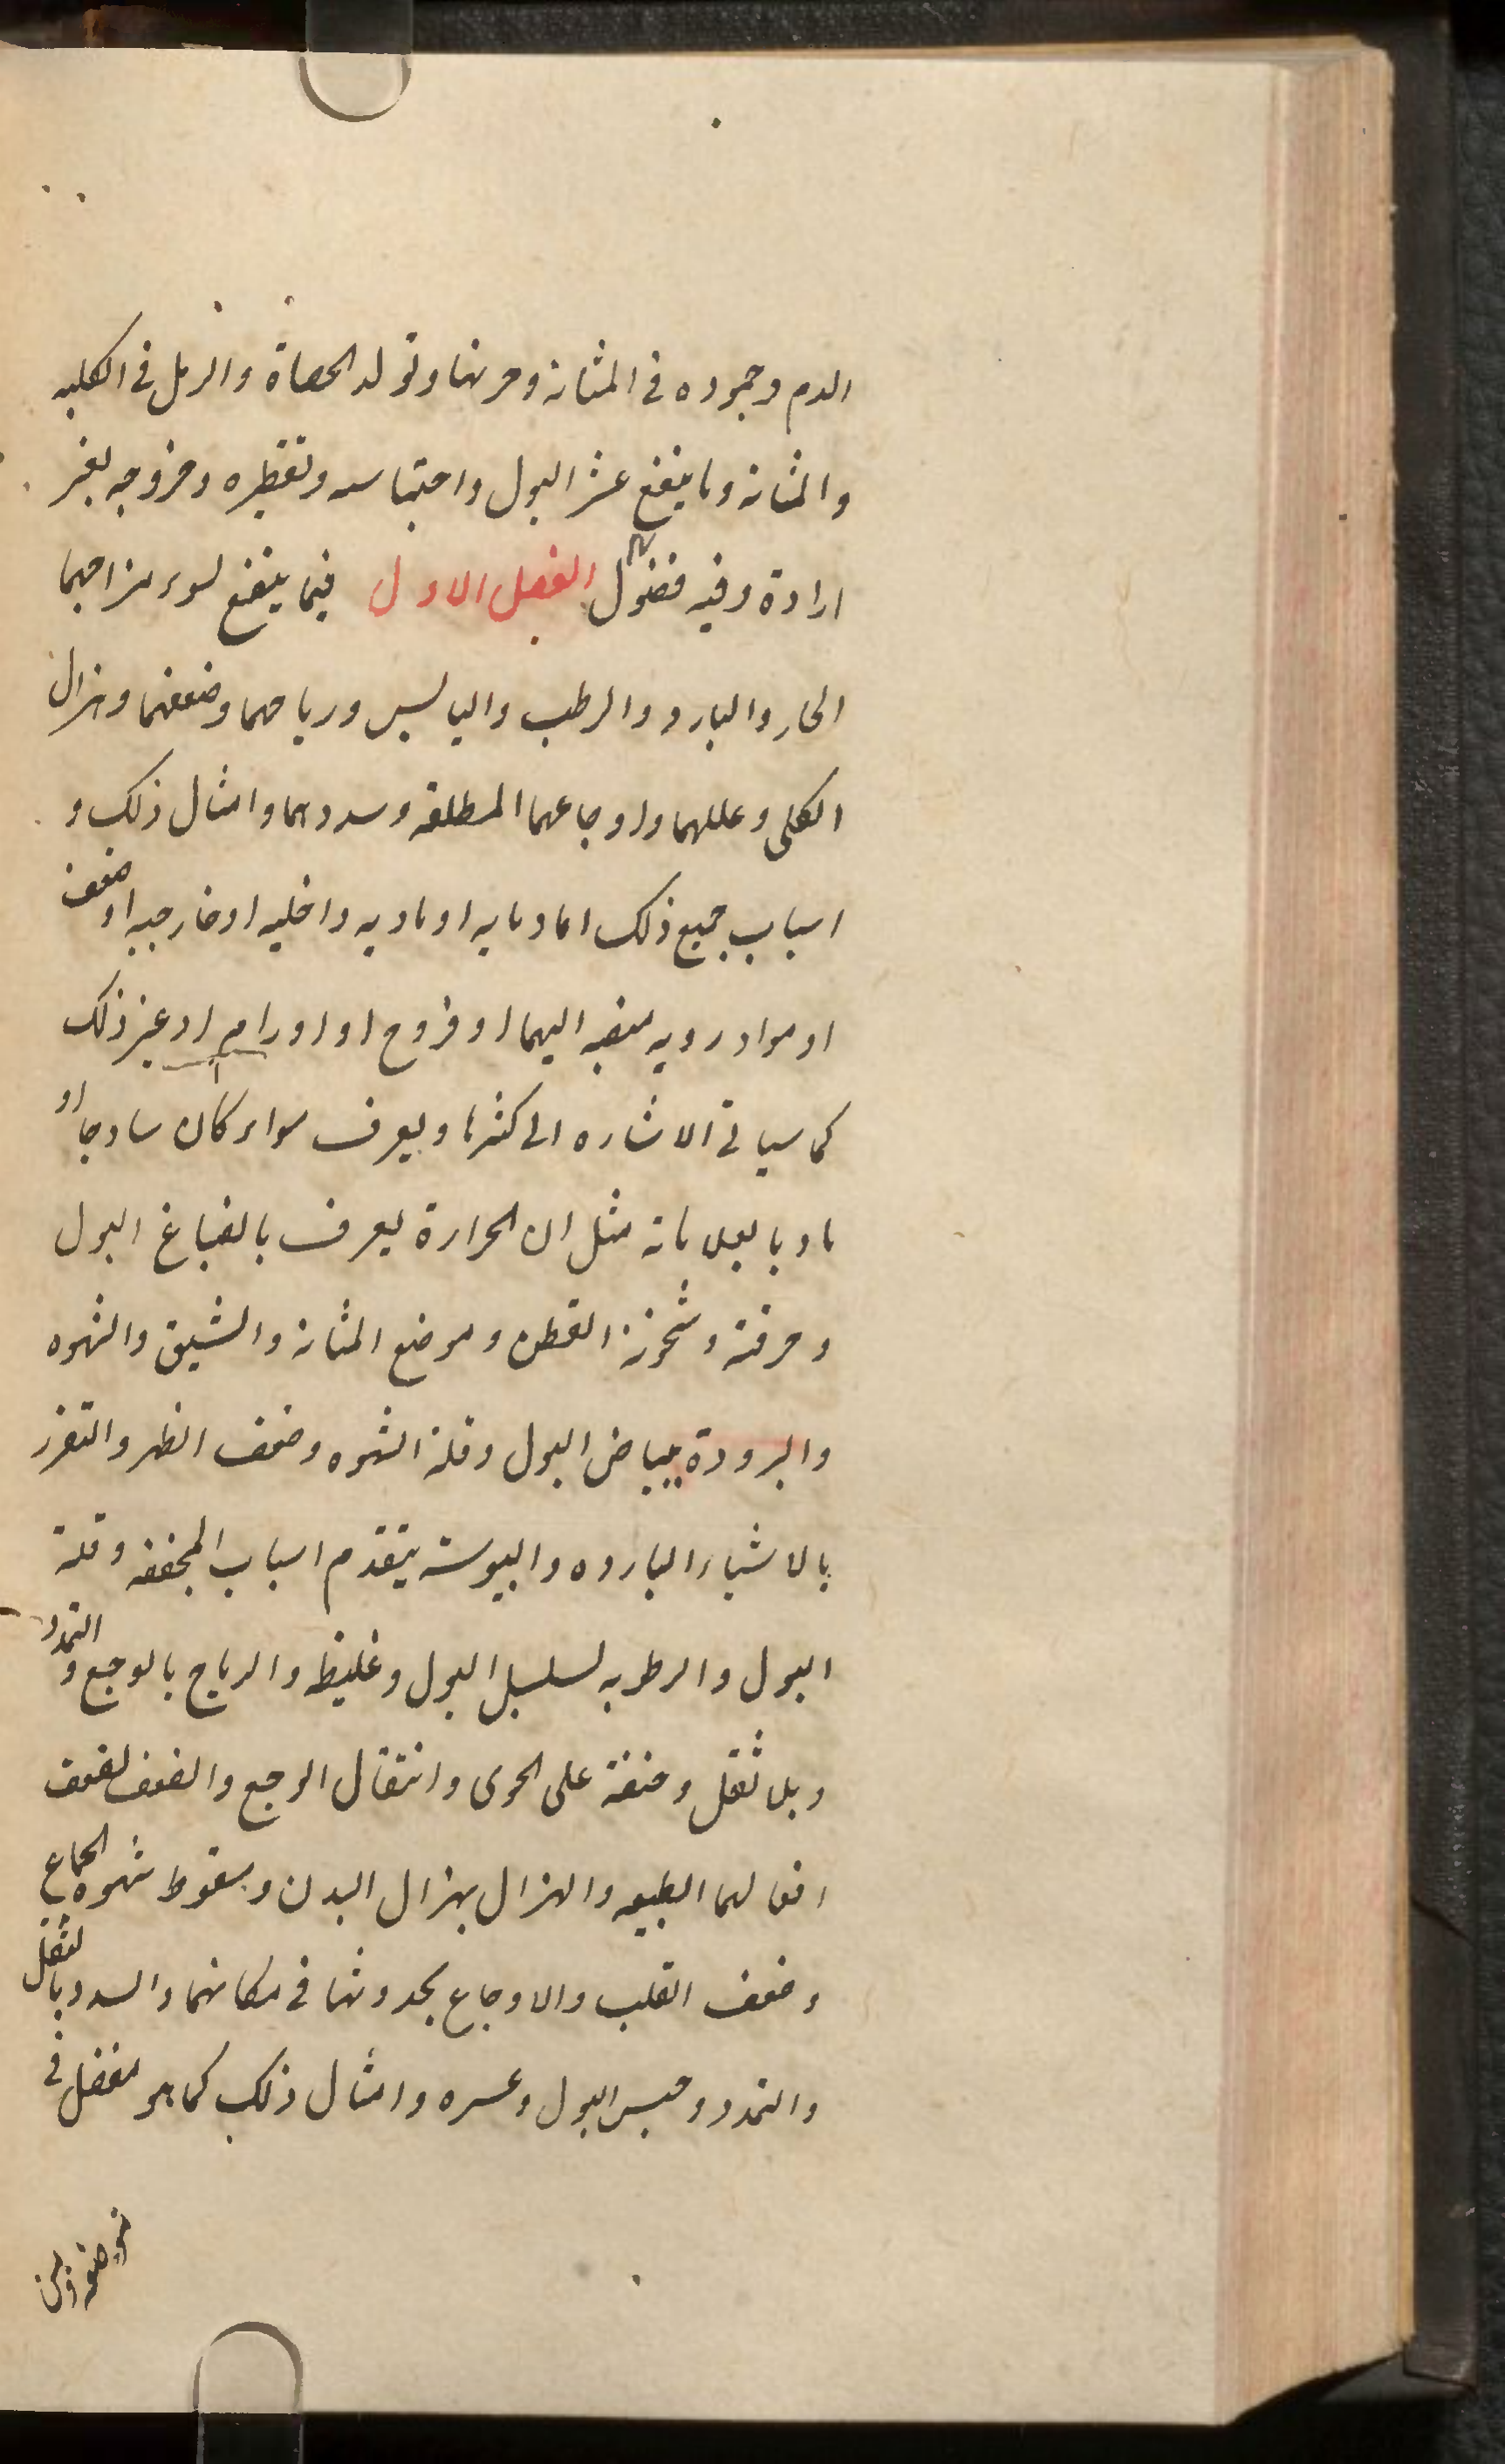 الدم وجموده في المثانة وحرنها وتولد الحصاة والرمل في الكليه
والمثانة وما ينفع عسر البول واحتباسه وتقطيره وخروجه لغير
ارادة وفيه فصول الفصل الاول فيما ينفع لسوء مزاجهما
الحار والبارد والرطب واليابس ورياحهما وضعفهما وهزال
الكلى وعللهما واوجاعهما المطلقه وسددهما وامثال ذلك و
اسباب جميع ذلك اما دمايه او ماديه داخليه او خارجيه او ضعف
او مواد رديه منصبه اليهما او قروح او اورام او غير ذلك
كما سياتي الاشاره الى كثرها ويعرف سواء كان ساذجا او
ماديا بعلاماته مثل ان الحرارة يعرف بانصباغ البول
وحرقته وسخونة القطن وموضع المثانة والشبق والشهوه
والبرودة ببياض البول وقلة الشهوه وضعف الظهر والتضرر
بالاشياء البارده واليبوسة بتقدم اسباب المجففه وقلة
البول والرطوبه لسلسل البول وغليظ والرياح بالوجع والتمدد
وبلا ثقل وخفة على الخوى وانتقال الوجع والضعف لضعف
افعالهما الطبيعيه والهزال بهزال البدن وسقوط شهوه الجماع
وضعف القلب والاوجاع بحدوثها في مكانهما والسدد بالثقل
والتمدد وحبس البول وعسره وامثال ذلك كما هو مفصل في